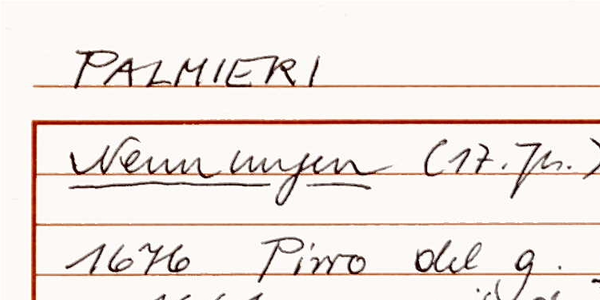 PALMIERI
Nennungen (17. Jh.)
1676 Pirro del g.